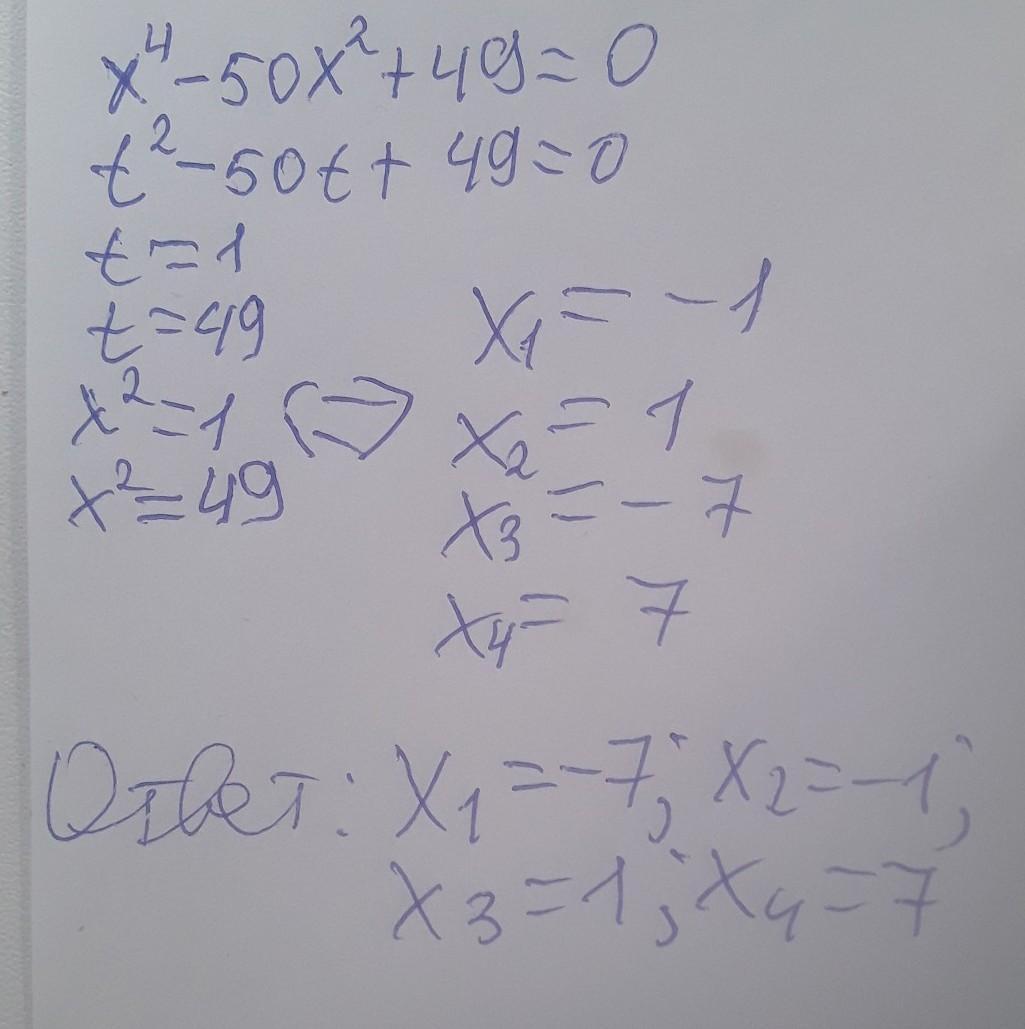 x⁴-50x²+49=0
t²-50t+49=0
t=1
t=49
x²=1 ⇔
x²=49
x₁=-1
x₂=1
x₃=-7
x₄=7
Ответ: x₁=-7; x₂=-1;
x₃=1; x₄=7